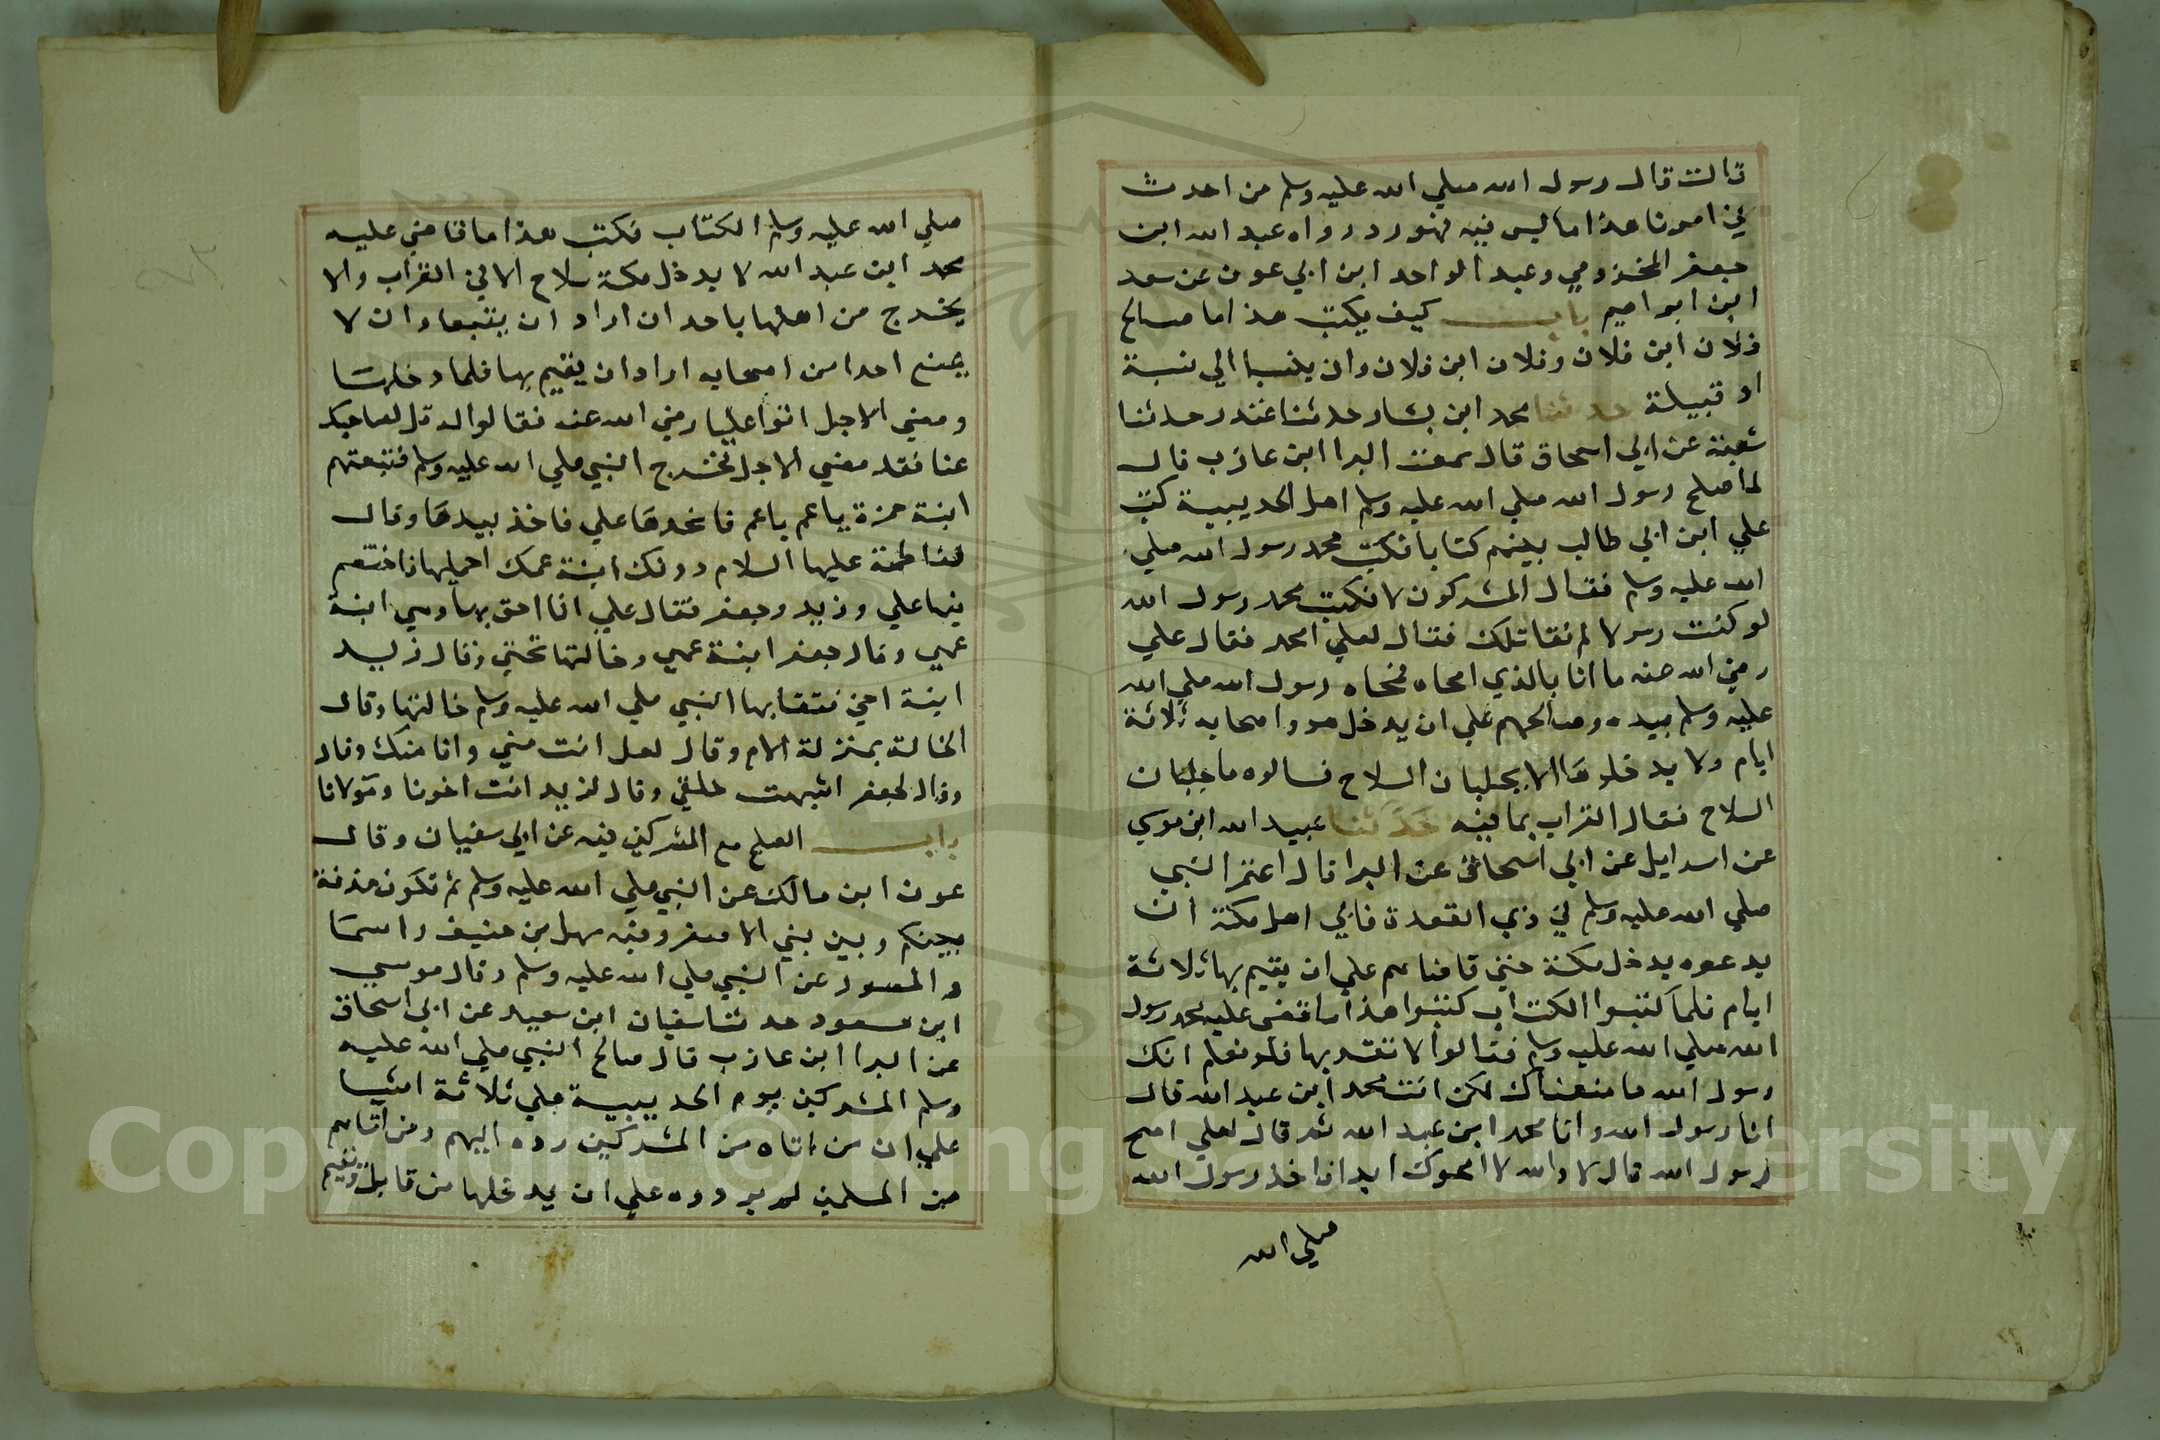 قالت قال رسول الله صلي الله عليه وسلم من احدث
في امرنا هذا ما ليس فيه فهو رد رواه عبد الله ابن
جعفر المخزومي وعبد الواحد ابن ابي عون عن سعد
ابن ابراهيم باب كيف يكتب هذا ما صالح
فلان ابن فلان وفلان ابن فلان وان ينسبا الي نسبة
او قبيلة حدثنا محمد ابن بشار حدثنا غندر حدثنا
شعبة عن ابي اسحاق قال سمعت البرا ابن عازب قال
لما صلح رسول الله صلي الله عليه وسلم اهل الحديبية كتب
علي ابن ابي طالب بينهم كتابا فكتب محمد رسول الله صلي
الله عليه وسلم فقال المشركون لا نكتب محمد رسول الله
لو كنت رسولا لم نقاتلك فقال لعلي امحه فقال علي
رضي الله عنه ما انا بالذي امحاه فمحاه رسول الله صلي الله
عليه وسلم بيده وصالحهم علي ان يدخل هو واصحابه ثلاثة
ايام ولا يدخلوها الا بجلبان السلاح فسالوه ما جلبان
السلاح فقال القراب بما فيه حدثنا عبيد الله ابن موسي
عن اسرايل عن ابي اسحاق عن البرا قال اعتمر النبي
صلي الله عليه وسلم في ذي القعدة فابي اهل مكة ان
يدعوه يدخل مكة حتي قاضاهم علي ان يقيم بها ثلاثة
ايام فلما كتبوا الكتاب كتبوا هذا ما قضي عليه محمد رسول
الله صلي الله عليه وسلم فقالوا لا نقر بها فلو نعلم انك
رسول الله ما منعناك لكن انت محمد ابن عبد الله قال
انا رسول الله وانا محمد ابن عبد الله ثم قال لعلي امح
رسول الله قال لا والله لا امحوك ابدا فاخذ رسول الله
صلي الله
صلي الله عليه وسلم الكتاب فكتب هذا ما قاضي عليه
محمد ابن عبد الله لا يدخل مكة سلاح الا في القراب والا
يخرج من اهلها باحد ان اراد ان يتبعه وان لا
يمنع احدا من اصحابه اراد ان يقيم بها فلما دخلها
ومضي الاجل اتوا عليا رضي الله عنه فقالوا له قل لصاحبك
عنا فقد مضي الاجل فخرج النبي صلي الله عليه وسلم فتبعتهم
ابنة حمزة يا عم يا عم فاخذها علي فاخذ بيدها وقال
لفاطمة عليها السلام دونك ابنة عمك احمليها فاختصم
فيها علي وزيد وجعفر فقال علي انا احق بها وهي ابنة
عمي وقال جعفر ابنة عمي وخالتها تحتي وقال زيد
ابنة اخي فقضا بها النبي صلي الله عليه وسلم خالتها وقال
الخالة بمنزلة الام وقال لعل انت مني وانا منك وقال
وقال لجعفر اشبهت خلقي وقال لزيد انت اخونا ومولانا
باب الصلح مع المشركين فيه عن ابي سفيان وقال
عون ابن مالك عن النبي صلي الله عليه وسلم ثم تكون هدنة
بينكم وبين بني الاصفر وفيه سهل بن حنيف واسما
والمسور عن النبي صلي الله عليه وسلم وقال موسي
ابن مسعود حدثنا سفيان ابن سعيد عن ابي اسحاق
عن البرا ابن عازب قال صالح النبي صلي الله عليه
وسلم المشركين يوم الحديبية علي ثلاثة اشيا
علي ان من اتاه من المشركين رده اليهم ومن اتاهم
من المسلمين لم يردوه علي ان يدخلها من قابل ويقيم
Copyright © King Saud University